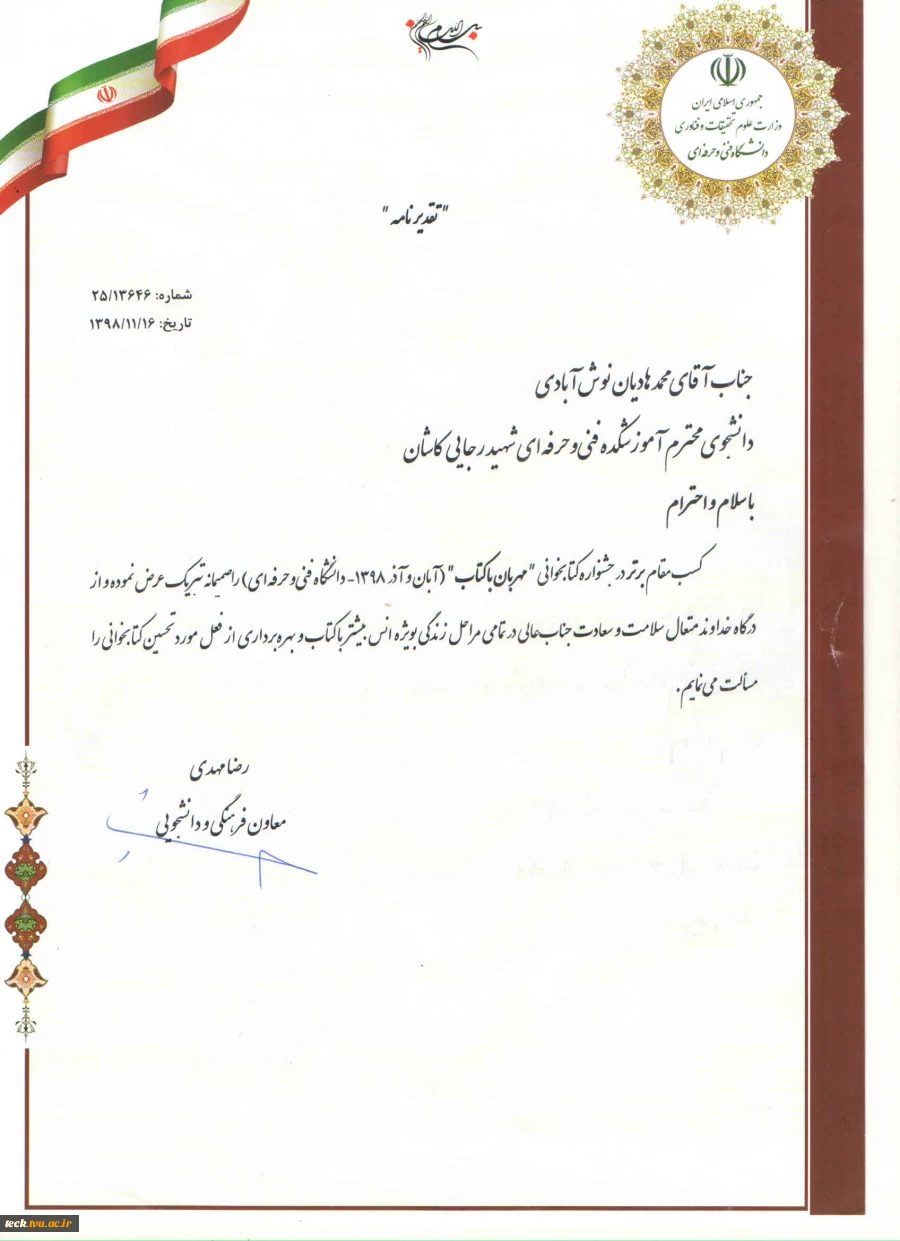 بسم الله الرحمن الرحیم
جمهوری اسلامی ایران
وزارت علوم تحقیقات و فناوری
دانشگاه فنی و حرفه ای
"تقدیرنامه"
شماره: ۲۵/۱۳۶۴۶
تاریخ: ۱۳۹۸/۱۱/۱۶
جناب آقای محمد هادیان نوش آبادی
دانشجوی محترم آموزشکده فنی و حرفه ای شهید رجایی کاشان
با سلام و احترام
کسب مقام برتر در جشنواره کتابخوانی "مهربان با کتاب" (آبان و آذر ۱۳۹۸- دانشگاه فنی و حرفه ای) را صمیمانه تبریک عرض نموده و از
درگاه خداوند متعال سلامت و سعادت جناب عالی در تمامی مراحل زندگی بویژه انس بیشتر با کتاب و بهره برداری از فعل مورد تحسین کتابخوانی را
مسالت می نمایم.
رضا مهدی
معاون فرهنگی و دانشجویی
teck.tvu.ac.ir